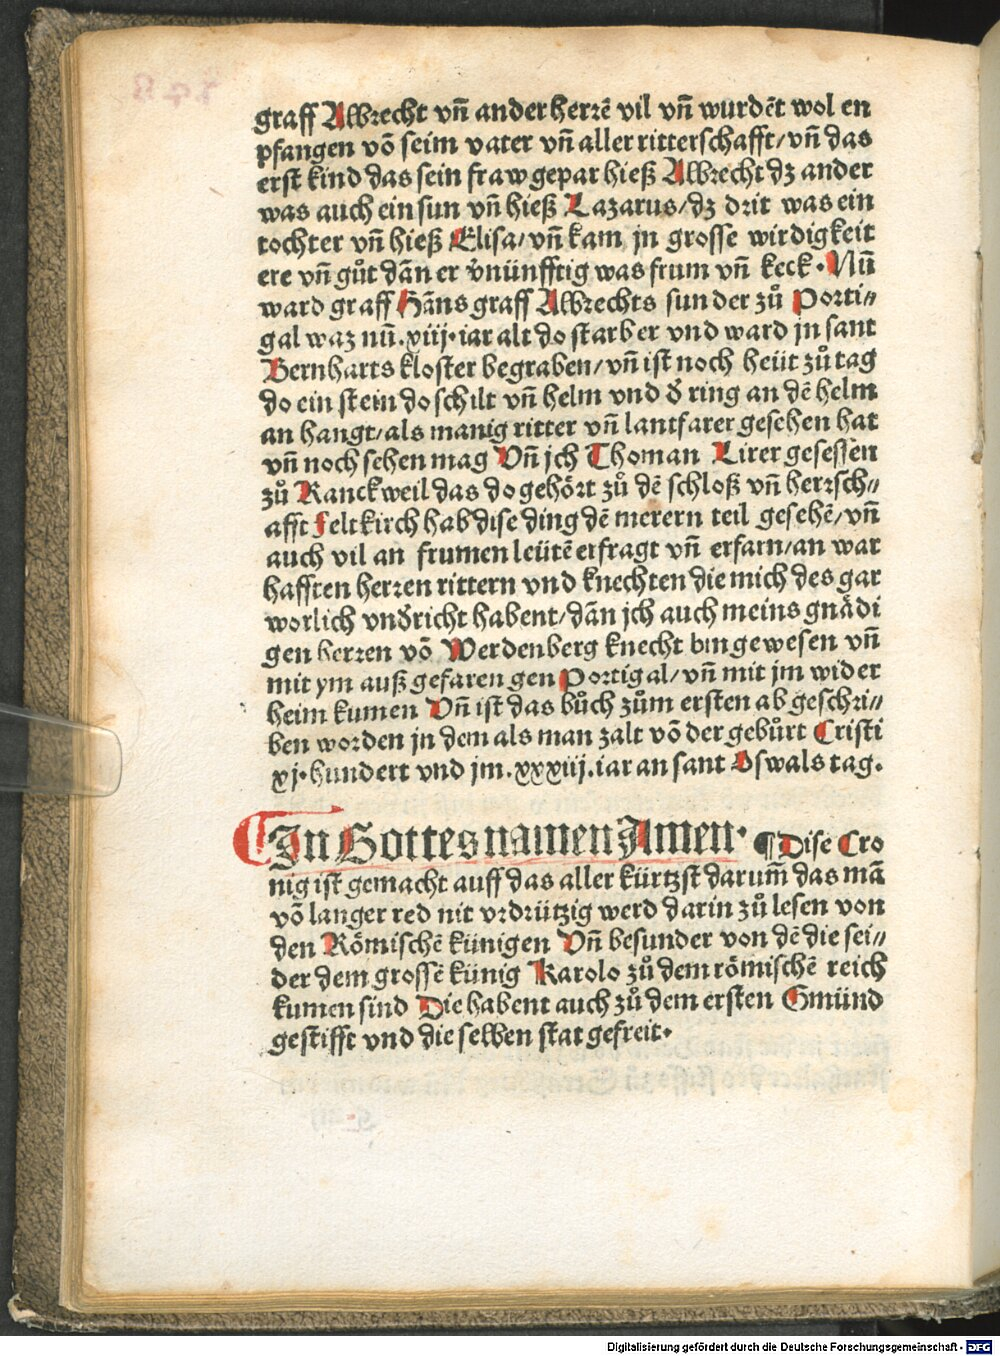 graff Albrecht vñ ander herrẽ vil vñ wurdẽt wol en
pfangen võ seim vater vñ aller ritterschafft/vñ das
erst kind das sein fraw gepar hieß Albrecht dz ander
was auch ein sun vñ hieß Lazarus/dz drit was ein
tochter vñ hieß Elisa/vñ kam jn grosse wirdigkeit
ere vñ gůt dãn er v̄nünfftig was frum vñ keck. Nũ
ward graff Hãns graff Albrechts sun der zů Porti⸗
gal waz nũ .xiij. iar alt do starb er vnd ward jn sant
Bernharts kloster begraben/vñ ist noch heüt zů tag
do ein stein do schilt vñ helm vnd d̕ ring an dẽ helm
an hangt/als manig ritter vñ lantfarer gesehen hat
vñ noch sehen mag Vñ jch Thoman Lirer gesessen
zů Ranckweil das do gehört zů dẽ schloß vñ herrsch⸗
afft Feltkirch hab dise ding dẽ merern teil gesehẽ/vñ
auch vil an frumen leütẽ erfragt vñ erfarn/an war
hafften herren rittern vnd knechten die mich des gar
worlich vnd̕richt habent/dãn jch auch meins gnädi
gen herren võ Werdenberg knecht bin gewesen vñ
mit ym auß gefaren gen Portigal/vñ mit jm wider
heim kumen Vñ ist das bůch zům ersten ab geschri⸗
ben worden jn dem als man zalt võ der gebůrt Cristi
xj. hundert vnd jm .xxxiij. iar an sant Oswals tag.
In Gottes namen Amen. ¶ Dise Cro
nig ist gemacht auff das aller kürtzst darum̃ das mã
võ langer red nit vrdrützig werd darin zů lesen von
den Römischẽ künigen Vñ besunder von dẽ die sei⸗
der dem grossẽ künig Karolo zů dem römischẽ reich
kumen sind Die habent auch zů dem ersten Gmünd
gestifft vnd die selben stat gefreit.
Digitalisierung gefördert durch die Deutsche Forschungsgemeinschaft - DFG